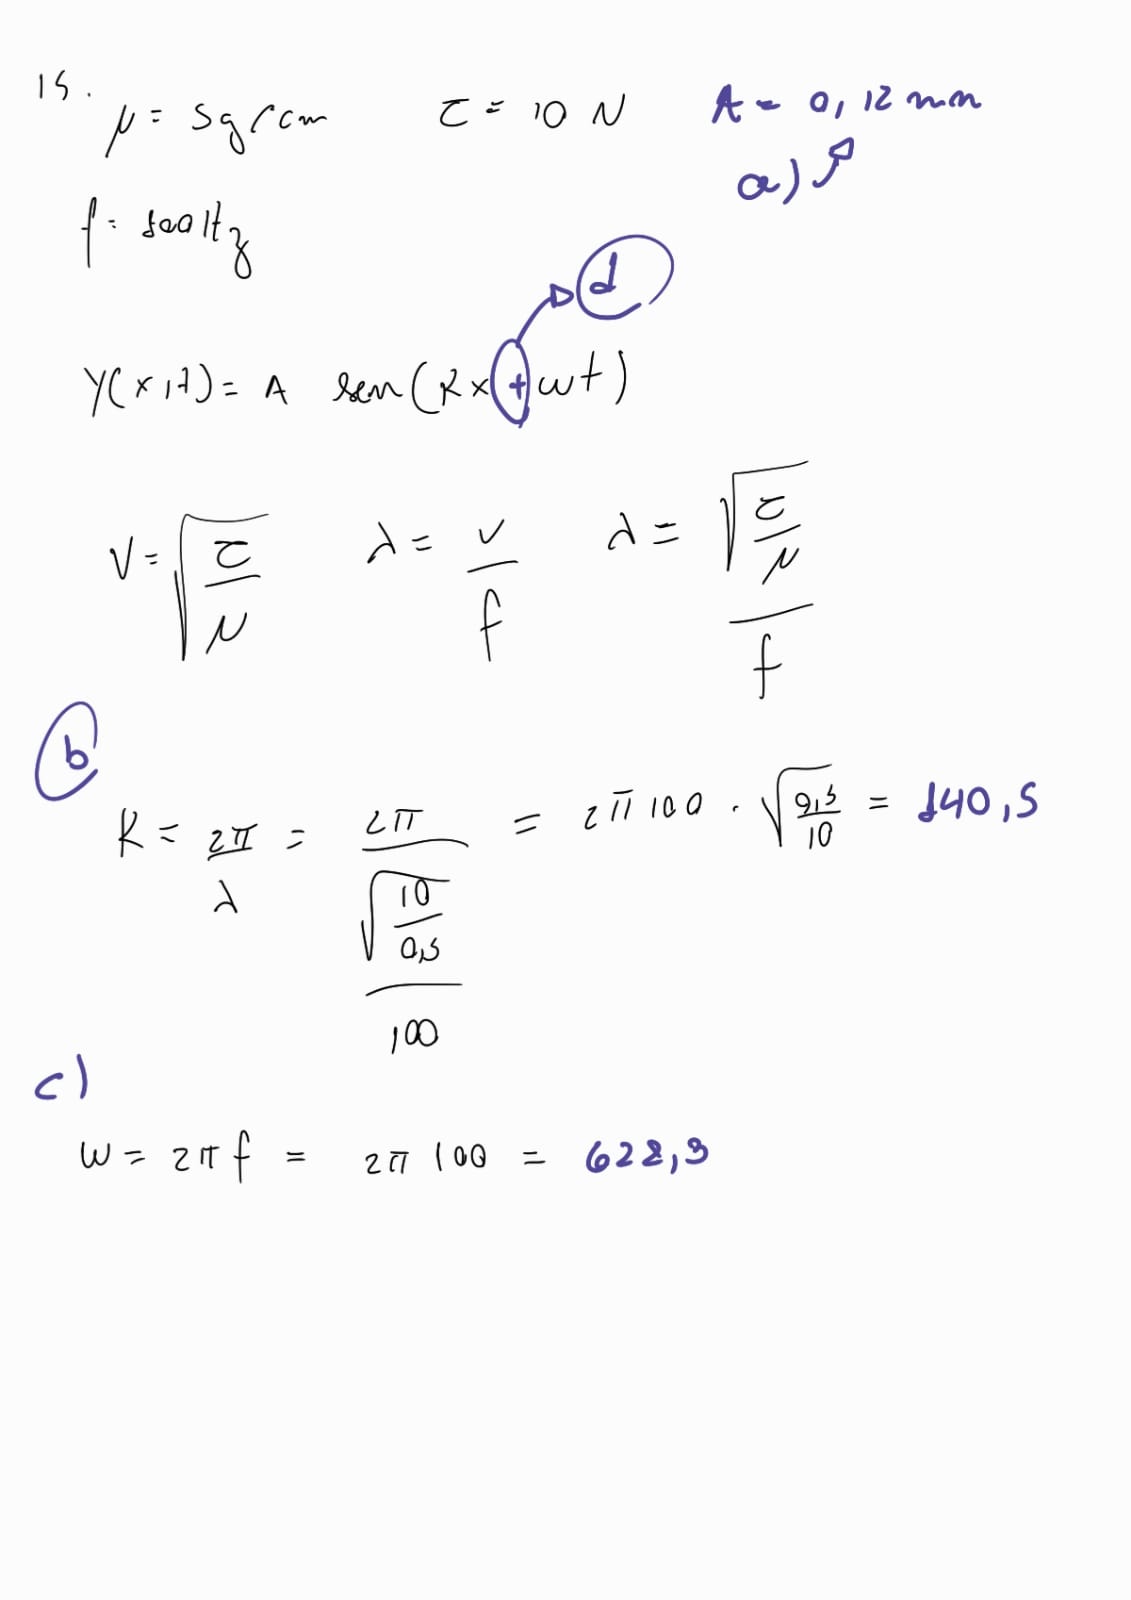 15.
μ = 5g/cm τ = 10 N A = 0,12 mm
a)
f = 100 Hz
d
y(x,t) = A sen(kx + ωt)
v = √(τ/μ) λ = v/f λ = √(τ/μ)/f
b
k = 2π/λ = 2π/(√(10/0,5)/100) = 2π100 · √(0,5/10) = 140,5
c)
ω = 2πf = 2π 100 = 628,3